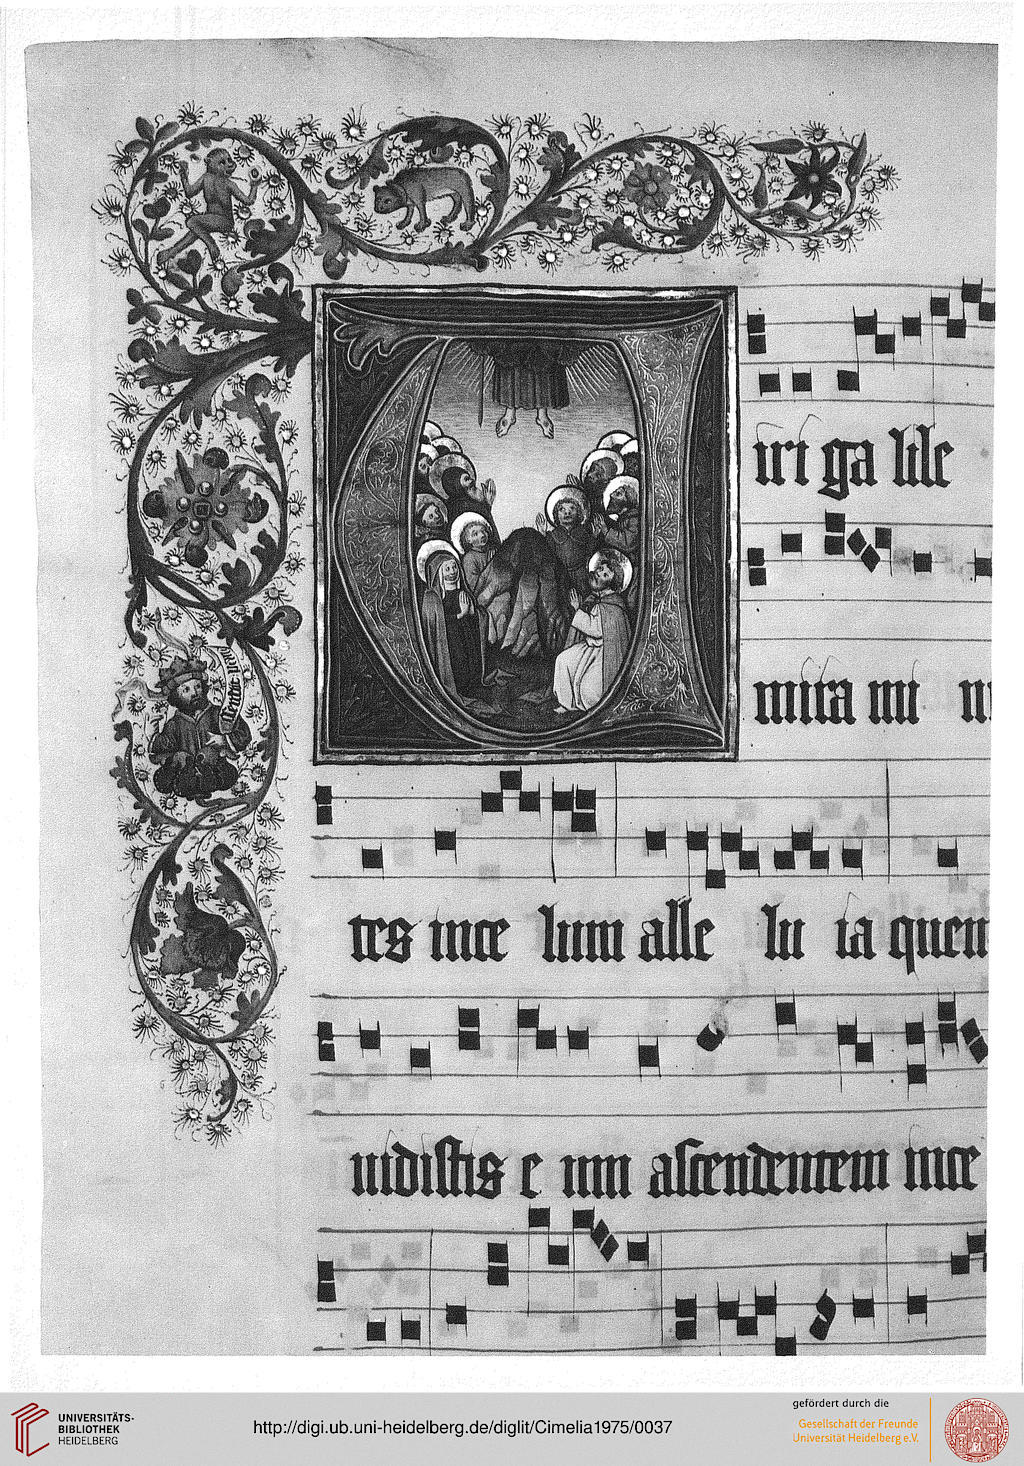 iri ga lile
mira mi ni
tes in ce lum alle lu ia quen
uidistis e um ascendentem in ce
UNIVERSITÄTS-
BIBLIOTHEK
HEIDELBERG
http://digi.ub.uni-heidelberg.de/diglit/Cimelia1975/0037
gefördert durch die
Gesellschaft der Freunde
Universität Heidelberg e.V.